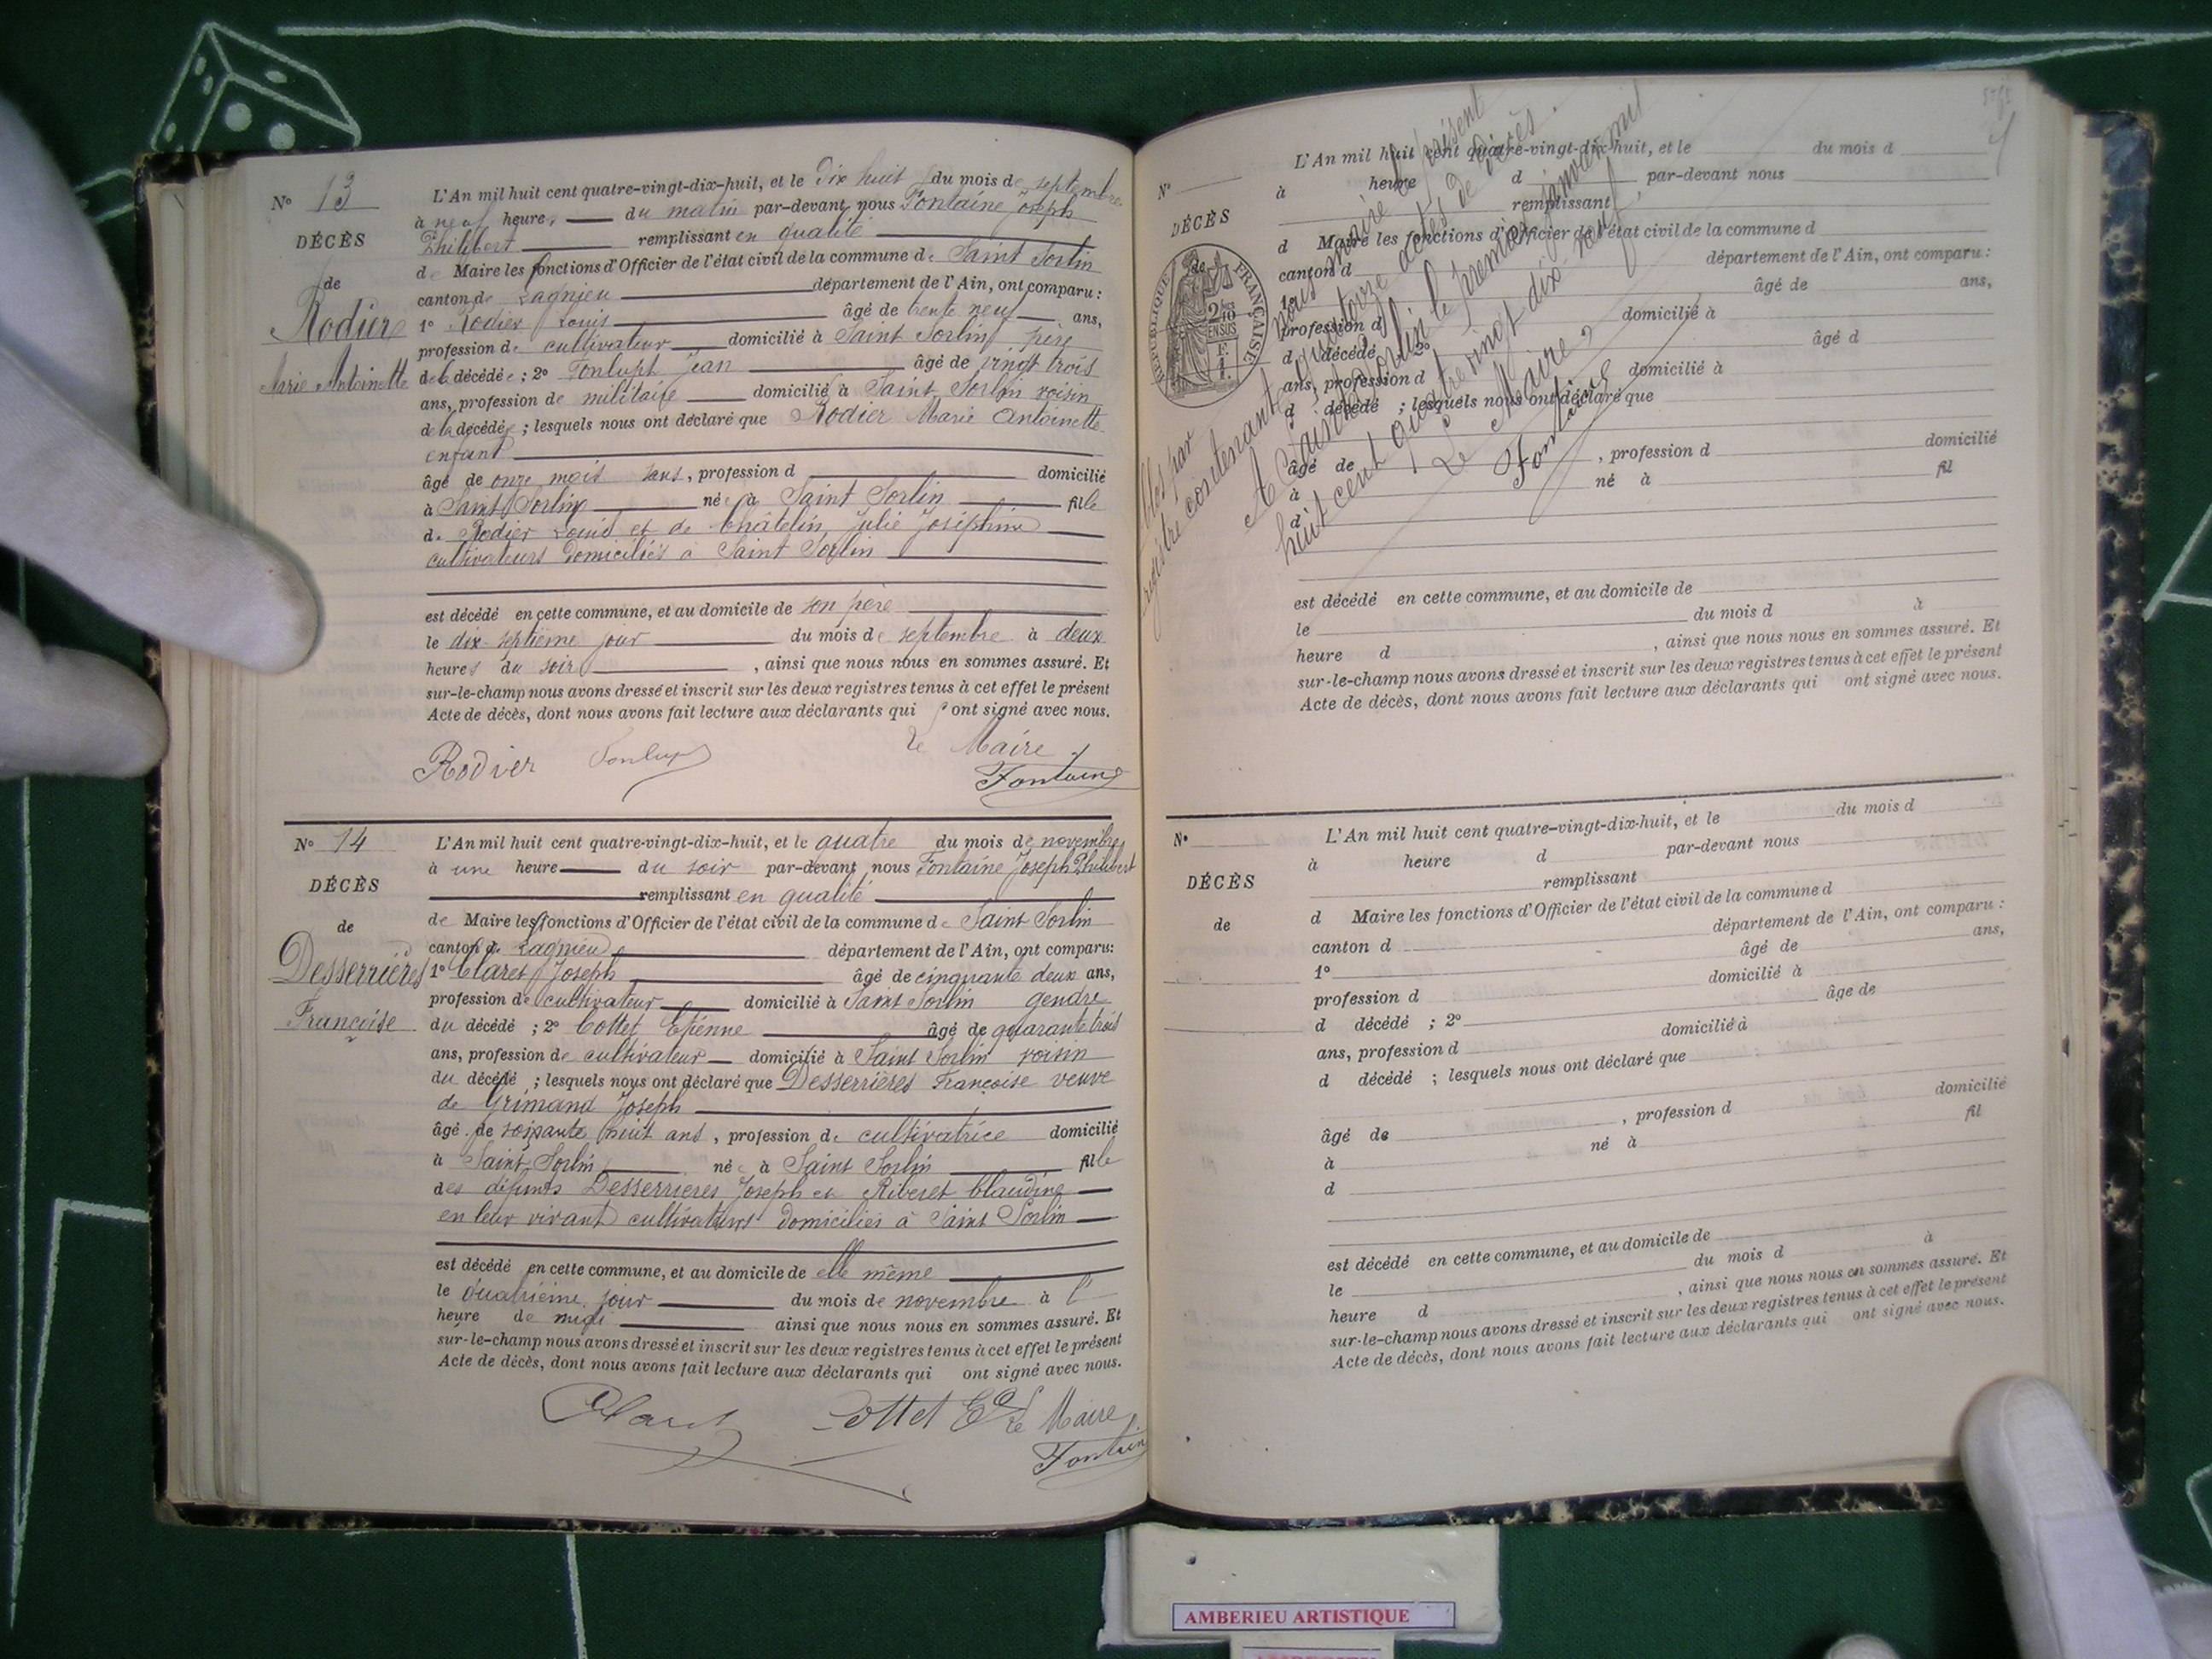 N° 13
DÉCÈS
de
Rodier
Marie Antoinette
L'An mil huit cent quatre-vingt-dix-huit, et le dix huit du mois de septembre
à neuf heures du matin par-devant nous Fontaine Joseph
Philibert remplissant en qualité
de Maire les fonctions d'Officier de l'état civil de la commune de Saint Sorlin
canton de Lagnieu département de l'Ain, ont comparu :
1° Rodier Louis âgé de trente neuf ans,
profession de cultivateur domicilié à Saint Sorlin père
de la décédée ; 2° Fonlupt Jean âgé de vingt trois
ans, profession de militaire domicilié à Saint Sorlin voisin
de la décédée ; lesquels nous ont déclaré que Rodier Marie Antoinette
enfant
âgé de onze mois ans, profession d domicilié
à Saint Sorlin née à Saint Sorlin fille
de Rodier Louis et de Châtelin Julie Joséphine
cultivateurs domiciliés à Saint Sorlin
est décédé en cette commune, et au domicile de son père
le dix-septième jour du mois de septembre à deux
heures du soir , ainsi que nous nous en sommes assuré. Et
sur-le-champ nous avons dressé et inscrit sur les deux registres tenus à cet effet le présent
Acte de décès, dont nous avons fait lecture aux déclarants qui ont signé avec nous.
Rodier Fonlupt Le Maire
Fontaine
N° 14
DÉCÈS
de
Desserrières
Françoise
L'An mil huit cent quatre-vingt-dix-huit, et le quatre du mois de novembre
à une heure du soir par-devant nous Fontaine Joseph Philibert
remplissant en qualité
de Maire les fonctions d'Officier de l'état civil de la commune de Saint Sorlin
canton de Lagnieu département de l'Ain, ont comparu:
1° Claret Joseph âgé de cinquante deux ans,
profession de cultivateur domicilié à Saint Sorlin gendre
du décédé ; 2° Cottet Etienne âgé de quarante trois
ans, profession de cultivateur domicilié à Saint Sorlin voisin
du décédé ; lesquels nous ont déclaré que Desserrières Françoise veuve
de Grimand Joseph
âgé de soixante huit ans , profession de cultivatrice domicilié
à Saint-Sorlin née à Saint Sorlin fille
des défunts Desserrieres Joseph et Riberet Claudine
en leur vivant cultivateurs domiciliés à Saint Sorlin
est décédé en cette commune, et au domicile de elle même
le quatrième jour du mois de novembre à l'
heure de midi ainsi que nous nous en sommes assuré. Et
sur-le-champ nous avons dressé et inscrit sur les deux registres tenus à cet effet le présent
Acte de décès, dont nous avons fait lecture aux déclarants qui ont signé avec nous.
Claret Cottet Et Le Maire
Fontaine
N°
DÉCÈS
de
RÉPUBLIQUE FRANÇAISE
2/10
EN SUS
L'An mil huit cent quatre-vingt-dix-huit, et le du mois d
à heure d par-devant nous
remplissant
d Maire les fonctions d'Officier de l'état civil de la commune d
canton d département de l'Ain, ont comparu :
1° âgé de ans,
profession d domicilié à
d décédé 2° âgé d
ans, profession d domicilié à
d décédé ; lesquels nous ont déclaré que
âgé de , profession d domicilié
à né à fil
d
est décédé en cette commune, et au domicile de
le du mois d à
heure d , ainsi que nous nous en sommes assuré. Et
sur-le-champ nous avons dressé et inscrit sur les deux registres tenus à cet effet le présent
Acte de décès, dont nous avons fait lecture aux déclarants qui ont signé avec nous.
par nous maire le présent
registre contenant quatorze actes de décès.
A Saint Sorlin le premier janvier mil
huit cent quatre vingt dix neuf
Le Maire
Fontaine
N°
DÉCÈS
de
L'An mil huit cent quatre-vingt-dix-huit, et le du mois d
à heure d par-devant nous
remplissant
d Maire les fonctions d'Officier de l'état civil de la commune d
canton d département de l'Ain, ont comparu :
1° âgé de ans,
profession d domicilié à
d décédé ; 2° âge de
ans, profession d domicilié à
d décédé ; lesquels nous ont déclaré que
âgé de , profession d domicilié
à né à fil
d
est décédé en cette commune, et au domicile de
le du mois d à
heure d , ainsi que nous nous en sommes assuré. Et
sur-le-champ nous avons dressé et inscrit sur les deux registres tenus à cet effet le présent
Acte de décès, dont nous avons fait lecture aux déclarants qui ont signé avec nous.
AMBERIEU ARTISTIQUE